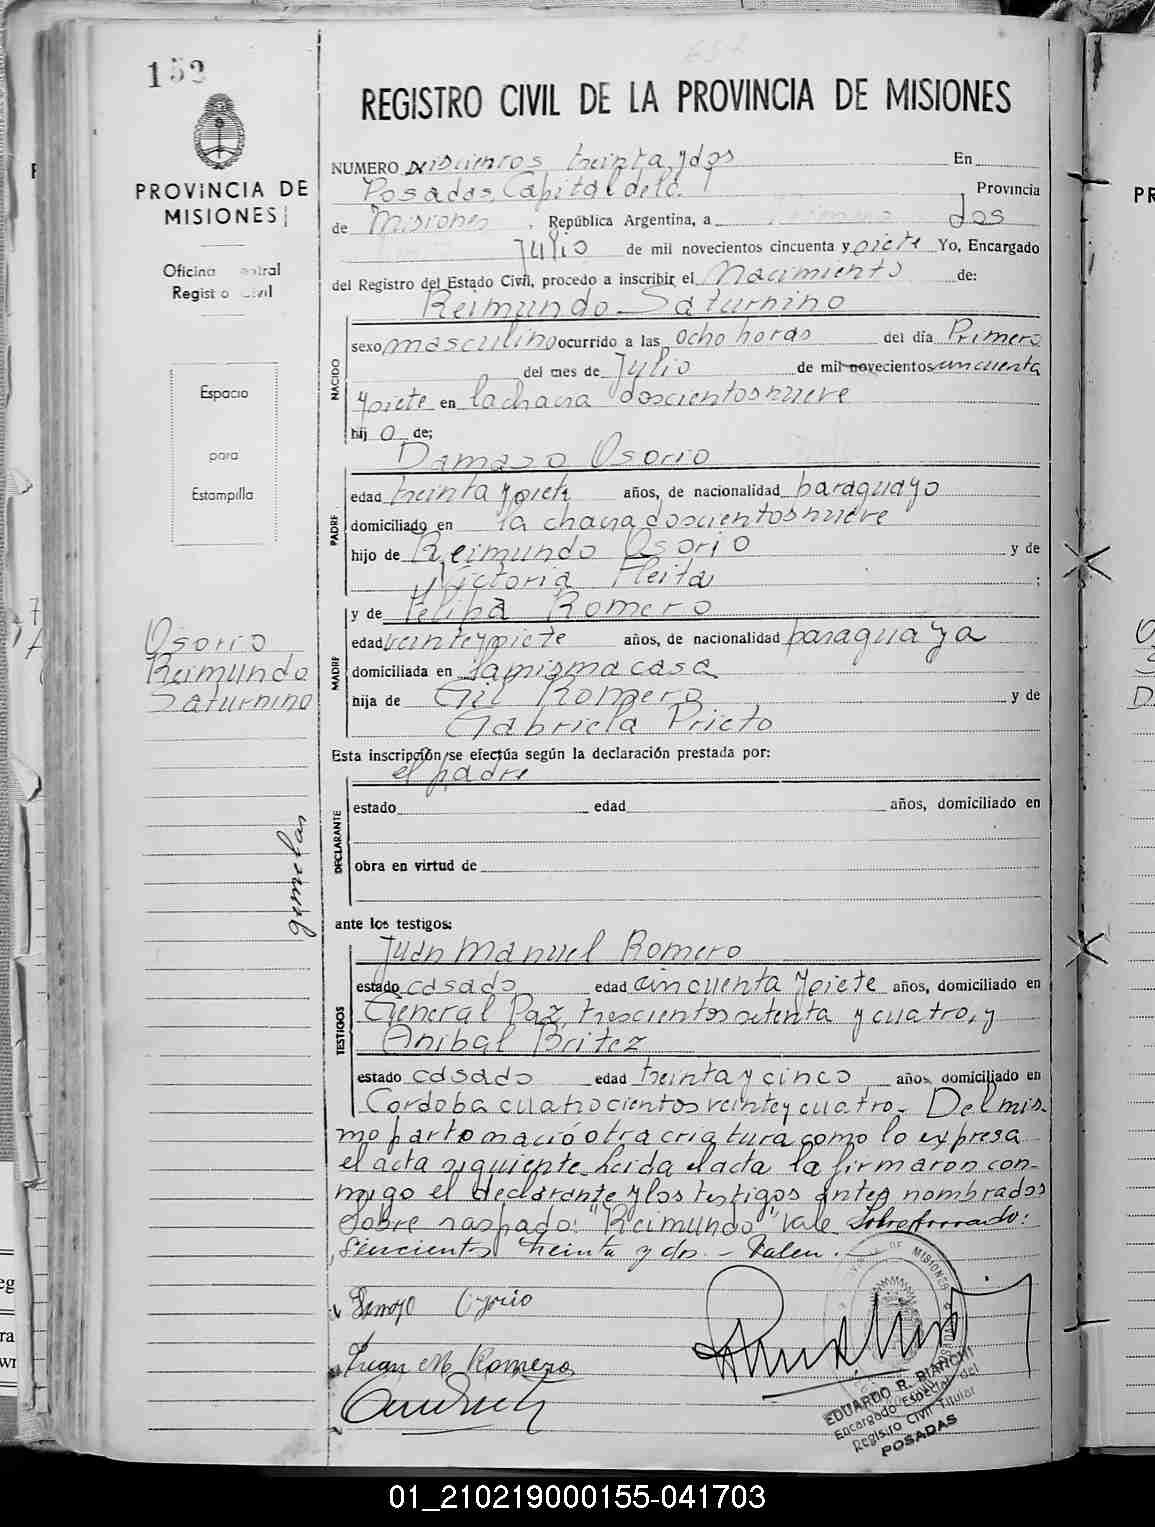 152
PROVINCIA DE
MISIONES
Oficina Central
Registro Civil
Espacio
para
Estampilla
Osorio
Reimundo
Saturnino
gemelas
REGISTRO CIVIL DE LA PROVINCIA DE MISIONES
NUMERO seiscientos treinta y dos En
Posadas, Capital de la Provincia
de Misiones, República Argentina, a dos
Julio de mil novecientos cincuenta y siete Yo, Encargado
del Registro del Estado Civil, procedo a inscribir el Nacimiento de:
Reimundo Saturnino
NACIDO
sexo masculino ocurrido a las ocho horas del día Primero
del mes de Julio de mil novecientos cincuenta
y siete en la chacra doscientos nueve
hijo de;
Damaso Osorio
PADRE
edad treinta y siete años, de nacionalidad paraguayo
domiciliado en la chacra doscientos nueve
hijo de Reimundo Osorio y de
Victoria Fleita;
y de Felipa Romero
MADRE
edad veinte y siete años, de nacionalidad paraguaya
domiciliada en la misma casa
hija de Gil Romero y de
Gabriela Prieto
Esta inscripción se efectúa según la declaración prestada por:
el padre
DECLARANTE
estado edad años, domiciliado en
obra en virtud de
ante los testigos:
Juan Manuel Romero
TESTIGOS
estado casado edad cincuenta y siete años, domiciliado en
General Paz, trescientos setenta y cuatro, y
Anibal Britez
estado casado edad treinta y cinco años, domiciliado en
Cordoba cuatrocientos veinte y cuatro. Del mis-
mo parto nació otra criatura como lo expresa
el acta siguiente. Leida el acta la firmaron con-
migo el declarante y los testigos antes nombrados
Sobre raspado: "Reimundo" Vale Sobreborrado:
Seiscientos treinta y dos. - Valen.
Damazo Osorio
Juan M Romero
MISIONES
EDUARDO R. BIANCHI
Encargado Especial del
Registro Civil Titular
POSADAS
01_210219000155-041703